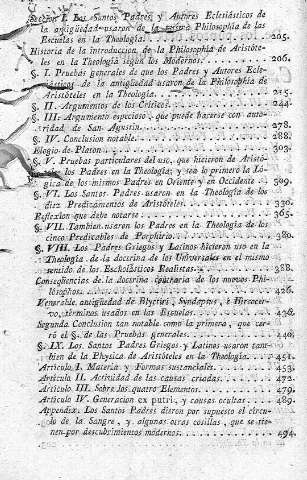 Seccion I. Los Santos Padres, y Autores Eclesiásticos de
la antigüedad usaron de la misma Philosophía de las
Escuelas en la Theología. 205.
Historia de la introduccion de la Philosophía de Aristóte-
les en la Theología segun los Modernos. 206.
§. I. Pruebas generales de que los Padres y Autores Ecle-
siásticos de la antigüedad usaron de la Philosophía de
Aristóteles en la Theología. 215.
§. II. Argumentos de los Críticos. 244.
§. III. Argumento especioso, que puede hacerse con auto-
ridad de San Agustin. 278.
§. IV. Conclusion notable. 288.
Elogio de Platon 303.
§. V. Pruebas particulares del uso, que hicieron de Aristó-
les los Padres en la Theología; y sea lo primero la Ló-
gica de los mismos Padres en Oriente y en Occidente. 309.
§. VI. Los Santos Padres usaron en la Theología de los
diez Predicamentos de Aristóteles. 330.
Reflexion que debe notarse 365.
§. VII. Tambien usaron los Padres en la Theología de los
cinco Predicables de Porphirio. 380.
§. VIII. Los Padres Griegos y Latinos hicieron uso en la
Theología de la doctrina de los Universales en el mismo
sentido de los Escholásticos Realistas. 388.
Conseqüencias de la doctrina contraria de los nuevos Phi-
lósophos. 426.
Venerable antigüedad de Blyctiri, Syndapsus, é Hircocer-
vo, términos usados en las Escuelas 436.
Segunda Conclusion tan notable como la primera, que cer-
ró el §. de las Pruebas generales. 440.
§. IX. Los Santos Padres Griegos y Latinos usaron tam-
bien de la Physica de Aristóteles en la Theología. 451.
Artículo I. Materia y Formas sustanciales. 453.
Artículo II. Actividad de las causas criadas. 472.
Artículo III. Sobre los quatro Elementos. 479.
Artículo IV. Generacion ex putri, y causas ocultas 489.
Appendix. Los Santos Padres dieron por supuesto el círcu-
lo de la Sangre, y algunas otras cosillas, que se tie-
nen por descubrimientos modernos. 494.